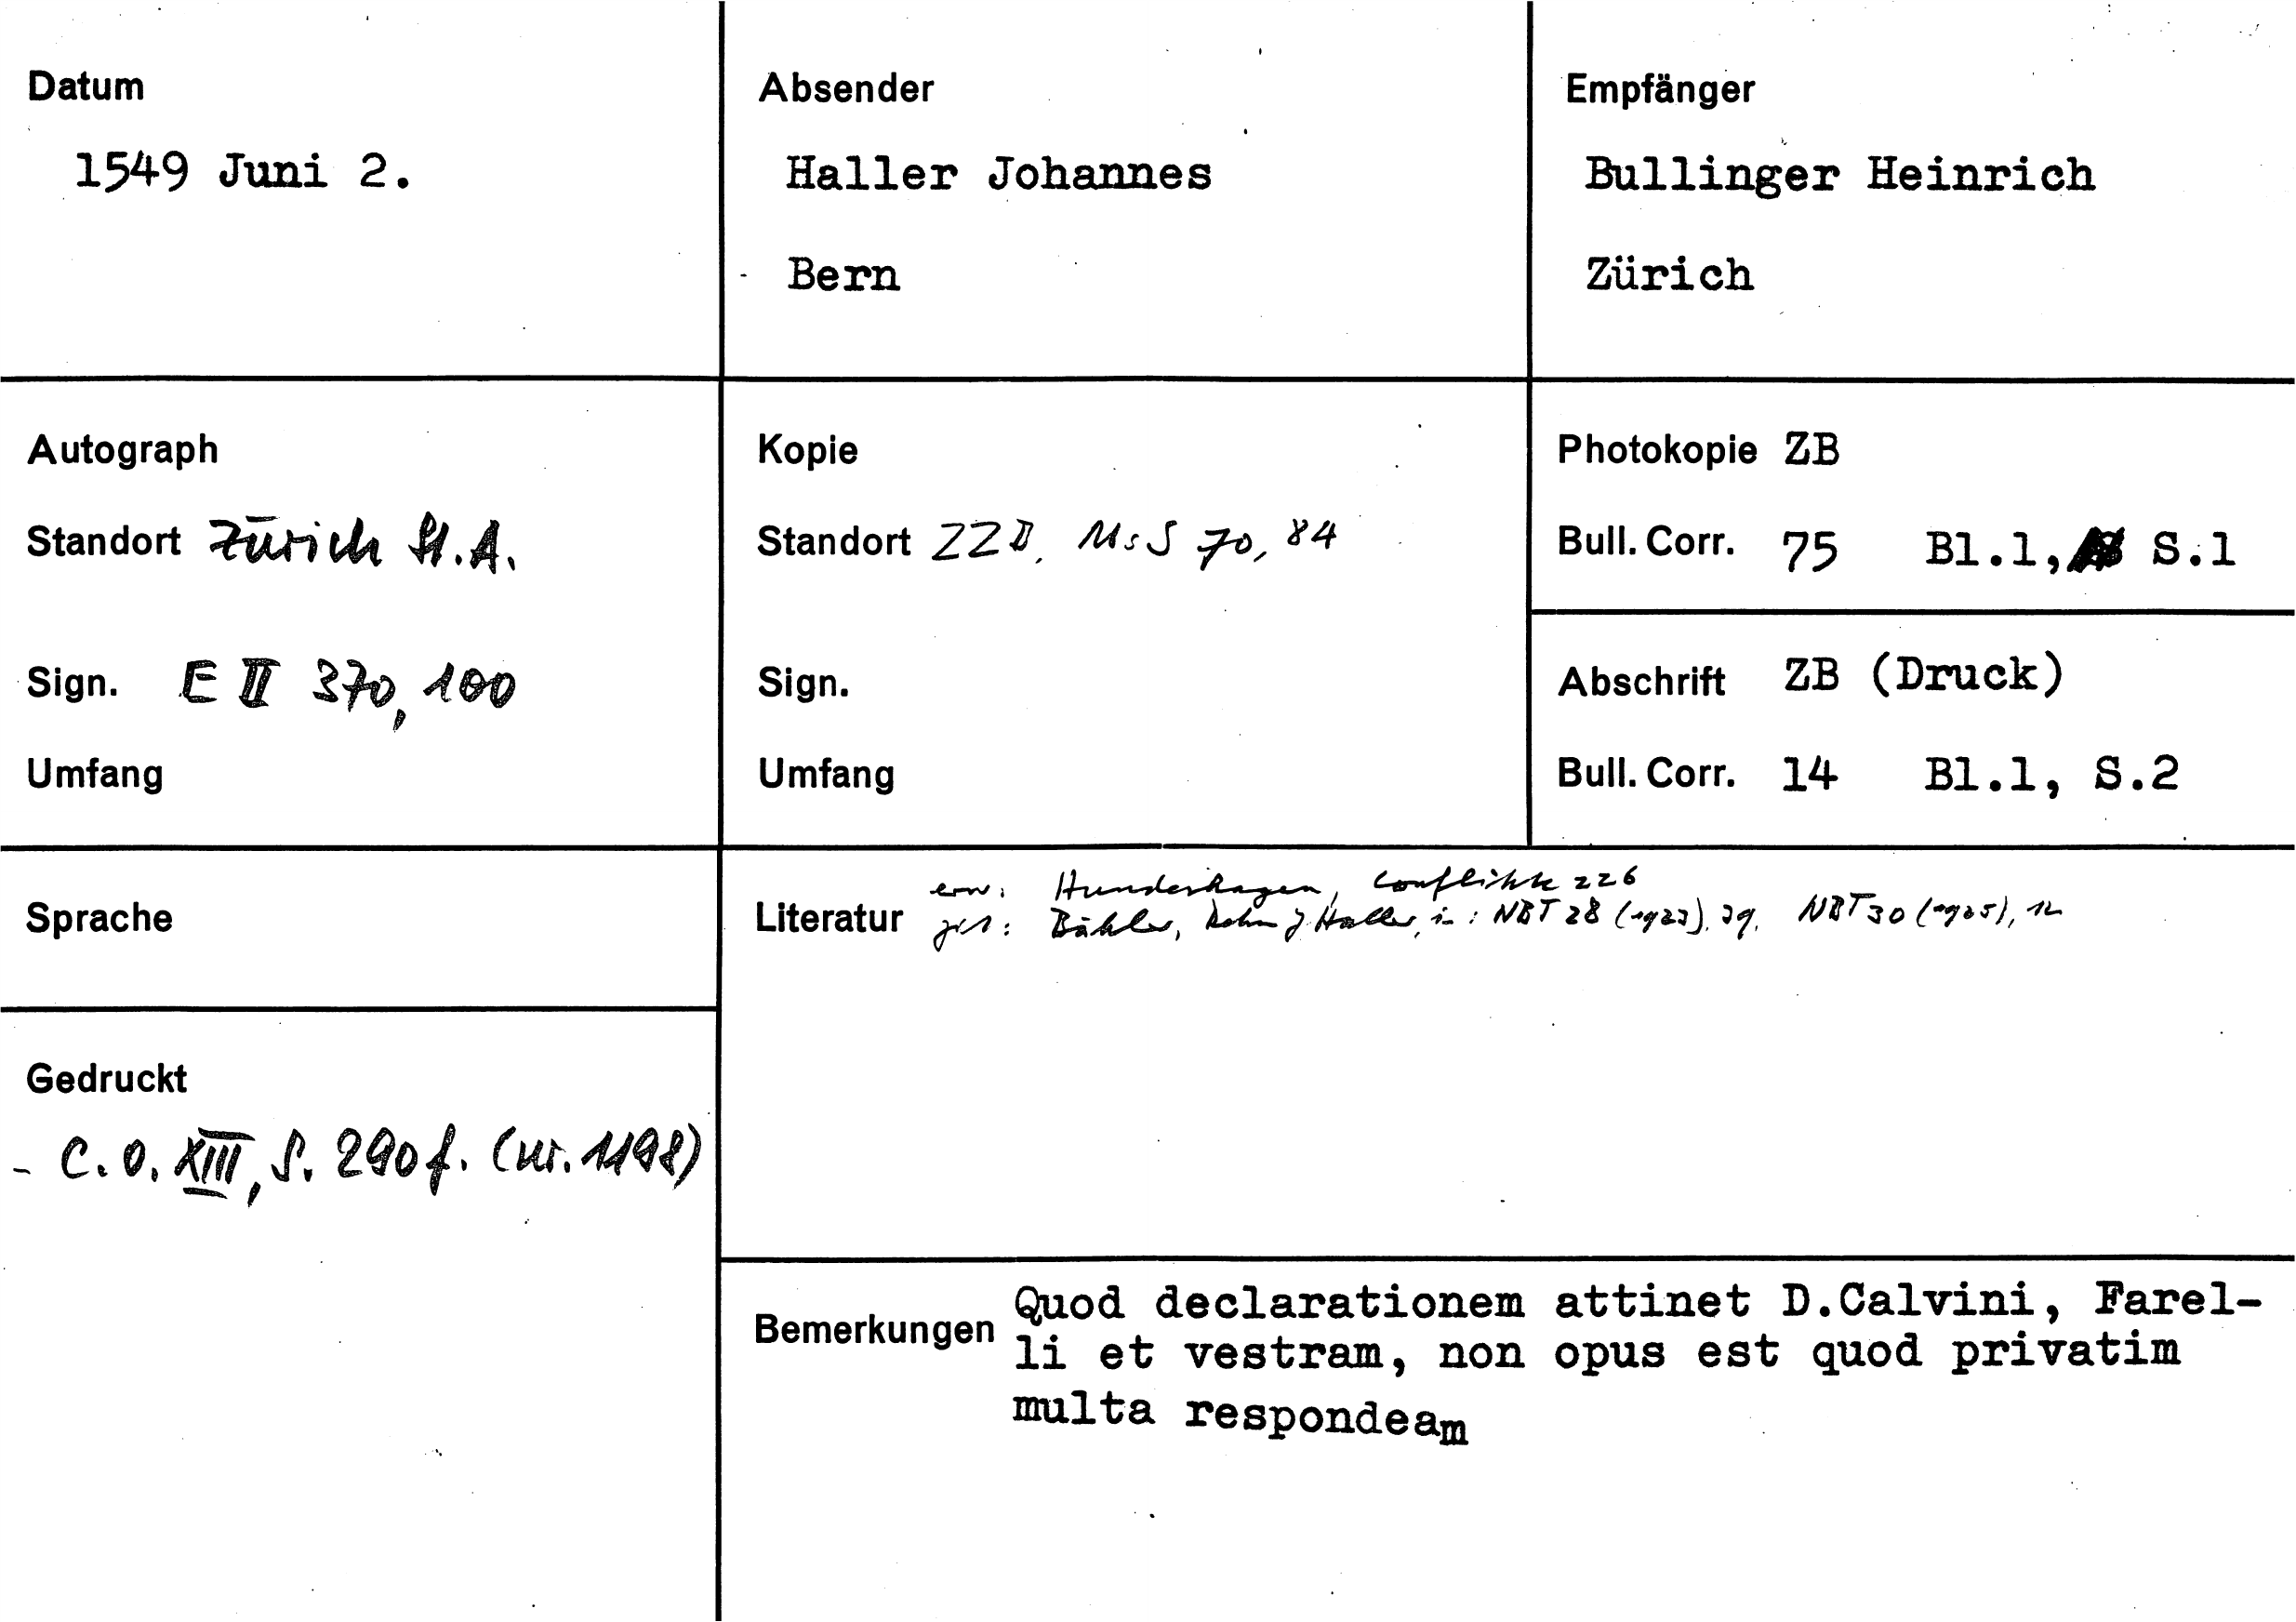 Datum
1549 Juni 2.
Absender
Haller Johannes
Bern
Empfänger
Bullinger Heinrich
Zürich
Autograph
Standort Zürich St.A.
Sign. E II 370, 100
Umfang
Kopie
Standort ZZB, MsS 70, 84
Sign.
Umfang
Photokopie ZB
Bull. Corr. 75 Bl.1, S.1
Abschrift ZB (Druck)
Bull. Corr. 14 Bl.1, S.2
Sprache
Literatur
erw: Hundeshagen, Conflikte 226
Bähler, J. Haller, in: NBT 28 (1923), 39, NBT 30 (1925), 12
Gedruckt
- C.O. XIII, S. 290f. (nr. 1198)
Bemerkungen
Quod declarationem attinet D.Calvini, Farel-
li et vestram, non opus est quod privatim
multa respondeam